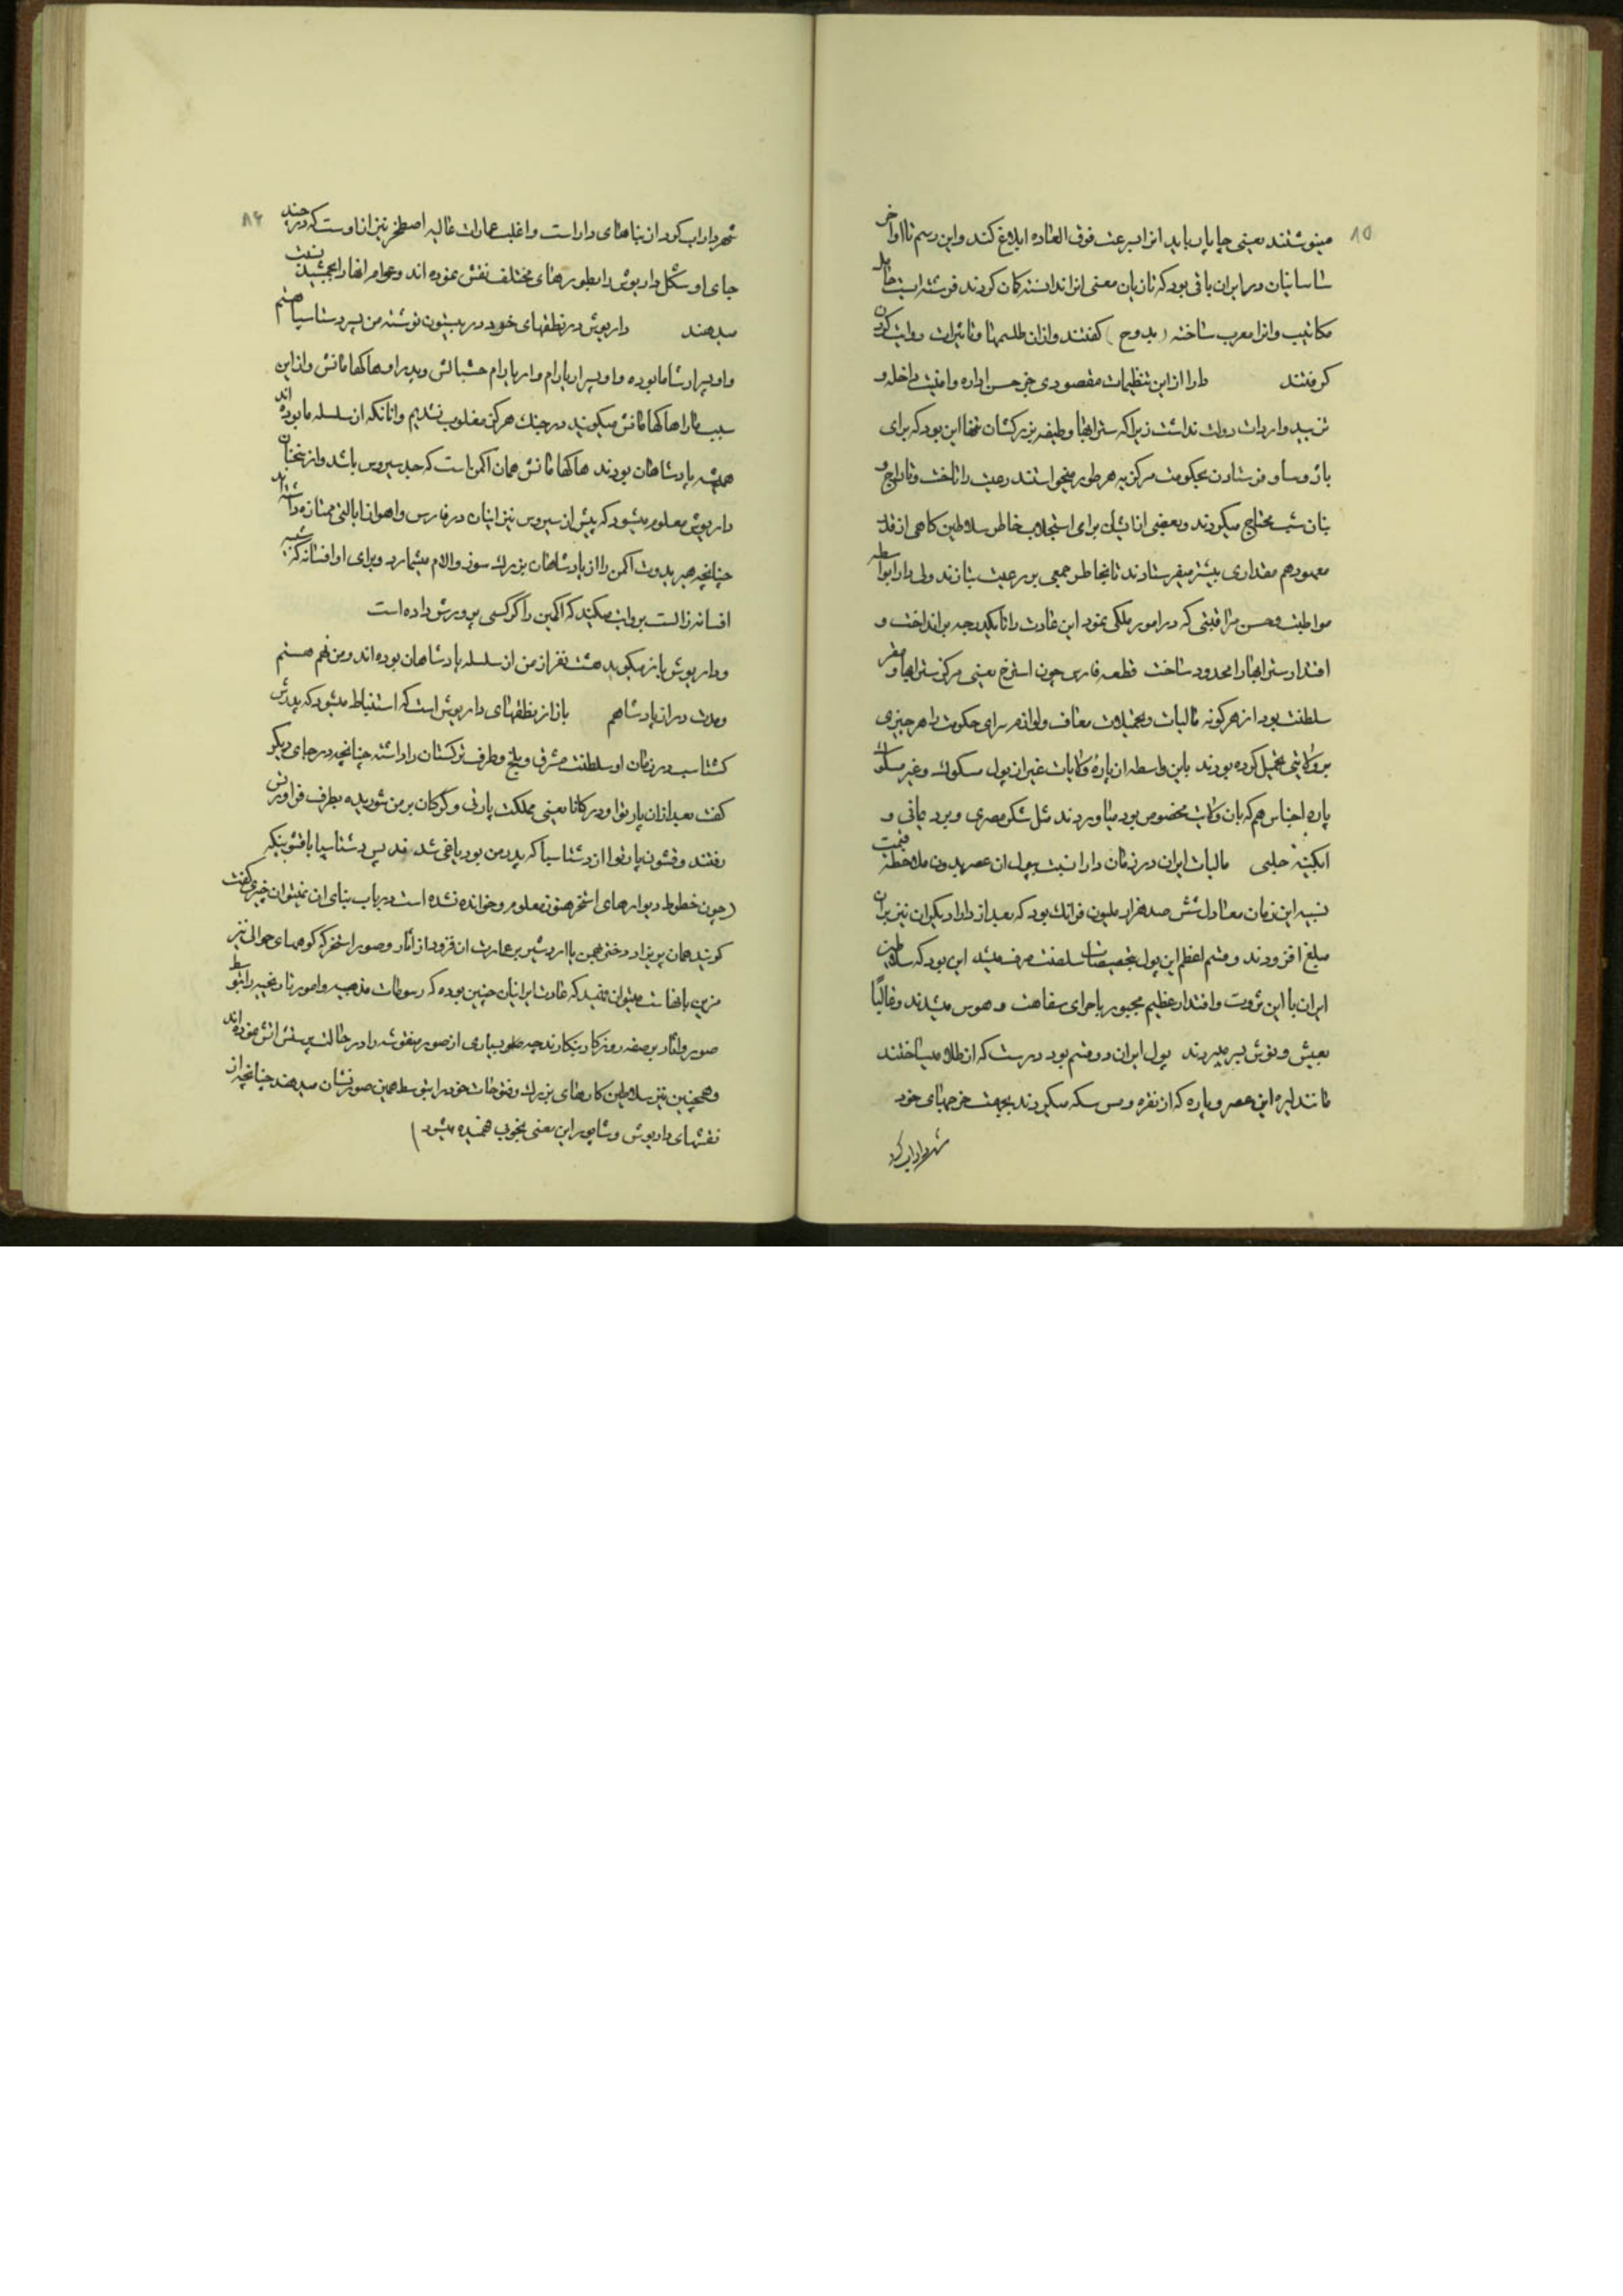 ۸۵
مینوشتند یعنی چاپاپ باید انرا بسرعت فوق العاده ابلاغ کند و این رسم تا اواخر
ساسانیان در ایران باقی بود که تازیان معنی انرا ندانسته کمان کردند فرشته است حامل
مکاتیب و انرا معرب ساخته (بدوح) کفتند و ازان طلسمها و تاثیرات روایت کردن
کرفتند دارا از این تنظیمات مقصودی جز حسن اداره و امنیت داخله و
تزیید واردات دولت نداشت زیرا که ستراپها وظیفه بزرکشان همان این بود که برای
باژ و ساو فرستادن بحکومت مرکزیه هر طور میخواستند رعیت را تاخت و تاراج و
بنان شب محتاج میکردند و بعضی از ایشان برای استجلاب خاطر سلاطین کاهی از قدر
معهود هم مقداری بیشتر میفرستادند تا بخاطر جمعی بر رعیت بتازند ولی دارا بواسطه
مواظبت و حسن مراقبتی که در امور ملکی نمود این عادت را تا یکدرجه برانداخت و
اقتدار ستراپها را محدود ساخت قطعه فارس چون استرخ یعنی مرکز ستراپها و مقر
سلطنت بود از هر کونه مالیات و تحمیلات معاف و لوازم سرای حکومت را هر چیزی
بر ولایتی تحمیل کرده بودند باین واسطه از پاره ولایات غیر از پول مسکوک و غیر مسکوک
پاره اجناس هم که بان ولایت مخصوص بود میاوردند مثل شکر مصری و برد یمانی و
ابکینه حلبی مالیات ایران در زمان دارا نسبت بپول ان عصر بدون ملاحظه قیمت
نسبیه این زمان معادل شش صد هزار ملیون فرانک بود که بعد از دارا دیکران نیز بران
مبلغ افزودند و قسم اعظم این پول بتخصیصات سلطنت صرف میشد این بود که سلاطین
ایران با این ثروت و اقتدار عظیم مجبور باجرای سفاهت و هوس میشدند و غالبًا
بعیش و نوش بسر میبردند پول ایران دو قسم بود درست که از طلا میساختند
مانند لیره این عصر و پاره که از نقره و مس سکه میکردند بجهت خرجهای خود
شهر داراب کرد
۸۶
شهر داراب کرد از بناهای دارا است و اغلب عمارات عالیه اصطخر نیز از اوست که در چند
جای او شکل داریوش را بطورهای مختلف نقش نموده اند و عوام انها را بجمشید نسبت
میدهند داریوش در نطقهای خود در بیستون نوشته من پسر وستاسپا هستم
و او پسر ارشاما بوده و او پسر اریارام و اریارام حسبالش و پدر او هاکهامانش و از این
سبب مارا هاکهامانش میکویند در جنک هرکز مغلوب نشدیم و انانکه از سلسله ما بوده اند
همیشه پادشاهان بودند هاکهامانش همان اکمن است که جد سیروس باشد و از سخنان
داریوش معلوم میشود که پیش از سیروس نیز اینان در فارس و اهواز ایالتی ممتازه داشته اند
چنانچه هیرودوت اکمن را از پادشاهان بزرک سوز و الام میشمارد و برای او افسانه که شبیه
افسانه زالست روایت میکند که اکمین را کرکسی پرورش داده است
و داریوش باز میکوید هشت نفر از من از سلسله پادشاهان بوده اند و من نهم هستم
و مدت در ان پادشاهم باز از نطقهای داریوش است که استنباط میشود که پدرش
کشتاسب در زمان او سلطنت مشرق و بلخ و طرف ترکستان را داشته چنانچه در جای دیکر
کفت بعد ازان پارتوا و ورکانا یعنی مملکت پارتی و کرکان بر من شوریده بطرف فراورتش
رفتند و قشون پارتوا از وشتاسپا که پدر من بود یاغی شد پس وشتاسپا با قشونیکه
(چون خطوط دیوارهای استخر هنوز معلوم و خوانده نشده است در باب بنای ان نمیتوان چیزی کفت
کویند همان پوراد دختر بهمن یا اردشیر بر عمارت ان فزود از اثار و صور استخر که کوههای حوالی نیز
مزین بانها ست میتوان فهمید که عادت ایرانیان چنین بوده که رسومات مذهبیه و امور تاریخیه را بتوسط
صور و اثار بر صفحه روزکار بنکارند چه ملوک بسیاری از صور منقوشه را در حالت پرستش اتش نموده اند
و همچنین نیز سلاطین کارهای بزرک و فتوحات خود را بتوسط همین صور نشان میدهند چنانچه از
نقشهای داریوش و شاپور این معنی بخوبی فهمیده میشود)